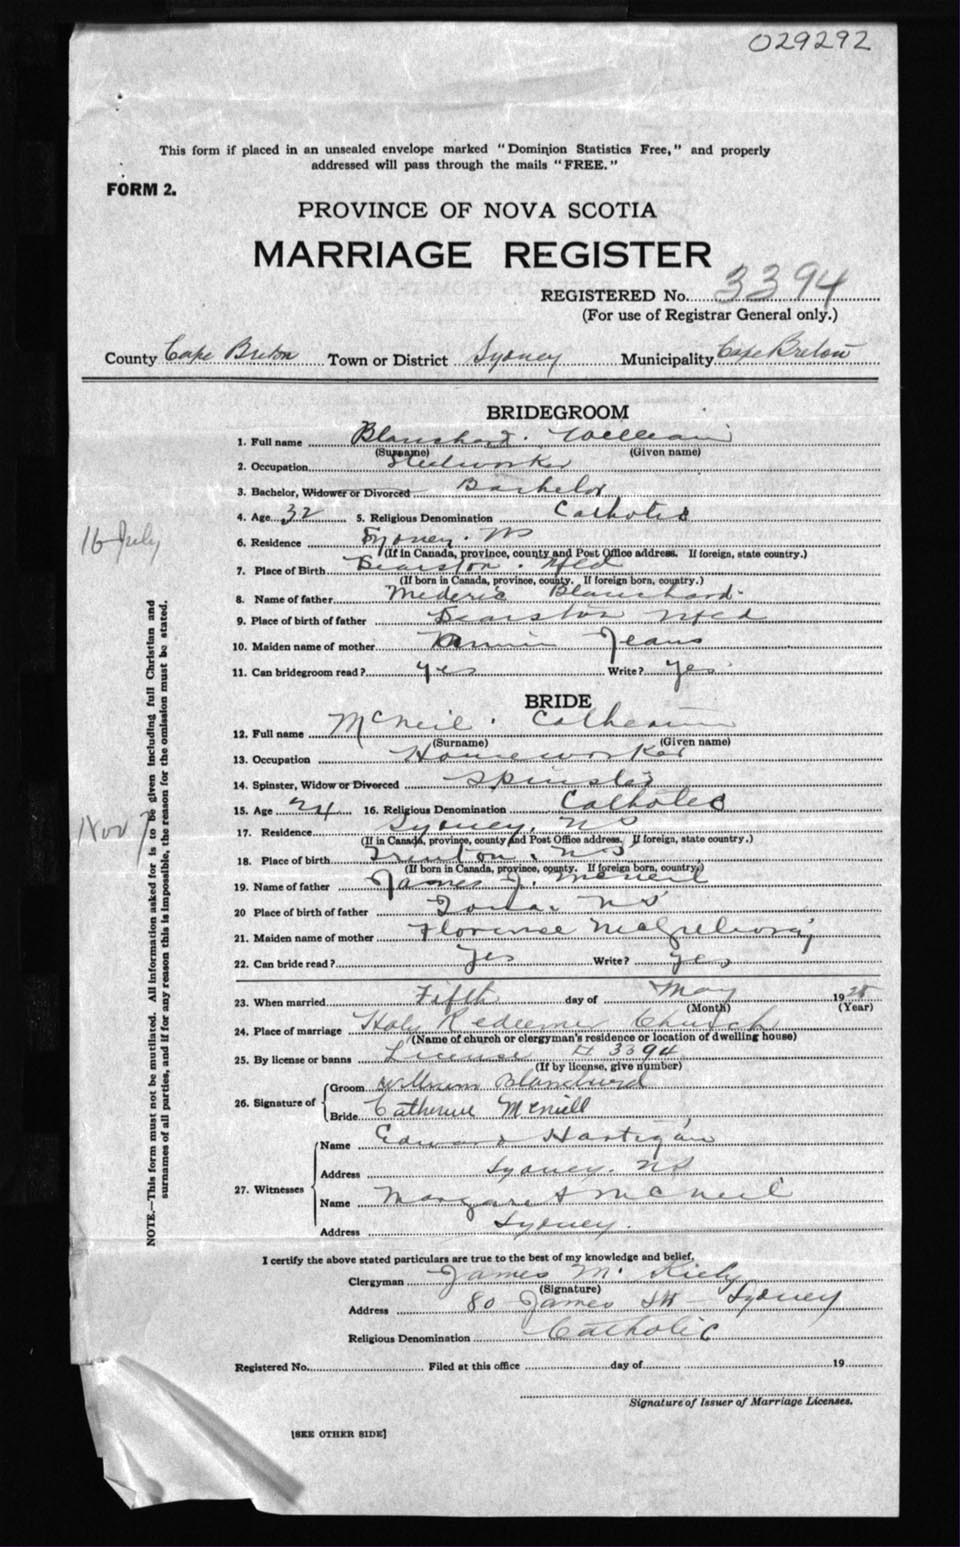 029292
This form if placed in an unsealed envelope marked "Dominion Statistics Free," and properly
addressed will pass through the mails "FREE."
FORM 2.
PROVINCE OF NOVA SCOTIA
MARRIAGE REGISTER
REGISTERED No. 3394
(For use of Registrar General only.)
County Cape Breton Town or District Sydney Municipality Cape Breton
BRIDEGROOM
1. Full name Blanchard. William
(Surname) (Given name)
2. Occupation Steelworker
3. Bachelor, Widower or Divorced Bachelor
4. Age 32 5. Religious Denomination Catholic
6. Residence Sydney. NS
(If in Canada, province, county and Post Office address. If foreign, state country.)
7. Place of Birth Nfld
(If born in Canada, province, county. If foreign born, country.)
8. Name of father Mederic Blanchard
9. Place of birth of father Nfld
10. Maiden name of mother Jeans
11. Can bridegroom read? yes Write? yes
16 July
BRIDE
12. Full name McNeil. Catherine
(Surname) (Given name)
13. Occupation Houseworker
14. Spinster, Widow or Divorced Spinster
15. Age 24 16. Religious Denomination Catholic
17. Residence Sydney, NS
(If in Canada, province, county and Post Office address. If foreign, state country.)
18. Place of birth Trenton, NS
(If born in Canada, province, county. If foreign born, country.)
19. Name of father James J. McNeil
20 Place of birth of father Iona NS
21. Maiden name of mother Florence
22. Can bride read? Yes Write? yes
Nov 7
23. When married Fifth day of May 19
(Month) (Year)
24. Place of marriage Holy Redeemer Church
(Name of church or clergyman's residence or location of dwelling house)
25. By license or banns License # 3394
(If by license, give number)
26. Signature of Groom William Blanchard
Bride Catherine McNeill
27. Witnesses Name Edward Hartigan
Address Sydney. NS
Name Margaret McNeil
Address Sydney.
I certify the above stated particulars are true to the best of my knowledge and belief,
Clergyman James M. Kiely
(Signature)
Address 80 James St Sydney
Religious Denomination Catholic
Registered No. Filed at this office day of 19
Signature of Issuer of Marriage Licenses.
[SEE OTHER SIDE]
NOTE.—This form must not be mutilated. All information asked for is to be given including full Christian and
surnames of all parties, and if for any reason this is impossible, the reason for the omission must be stated.